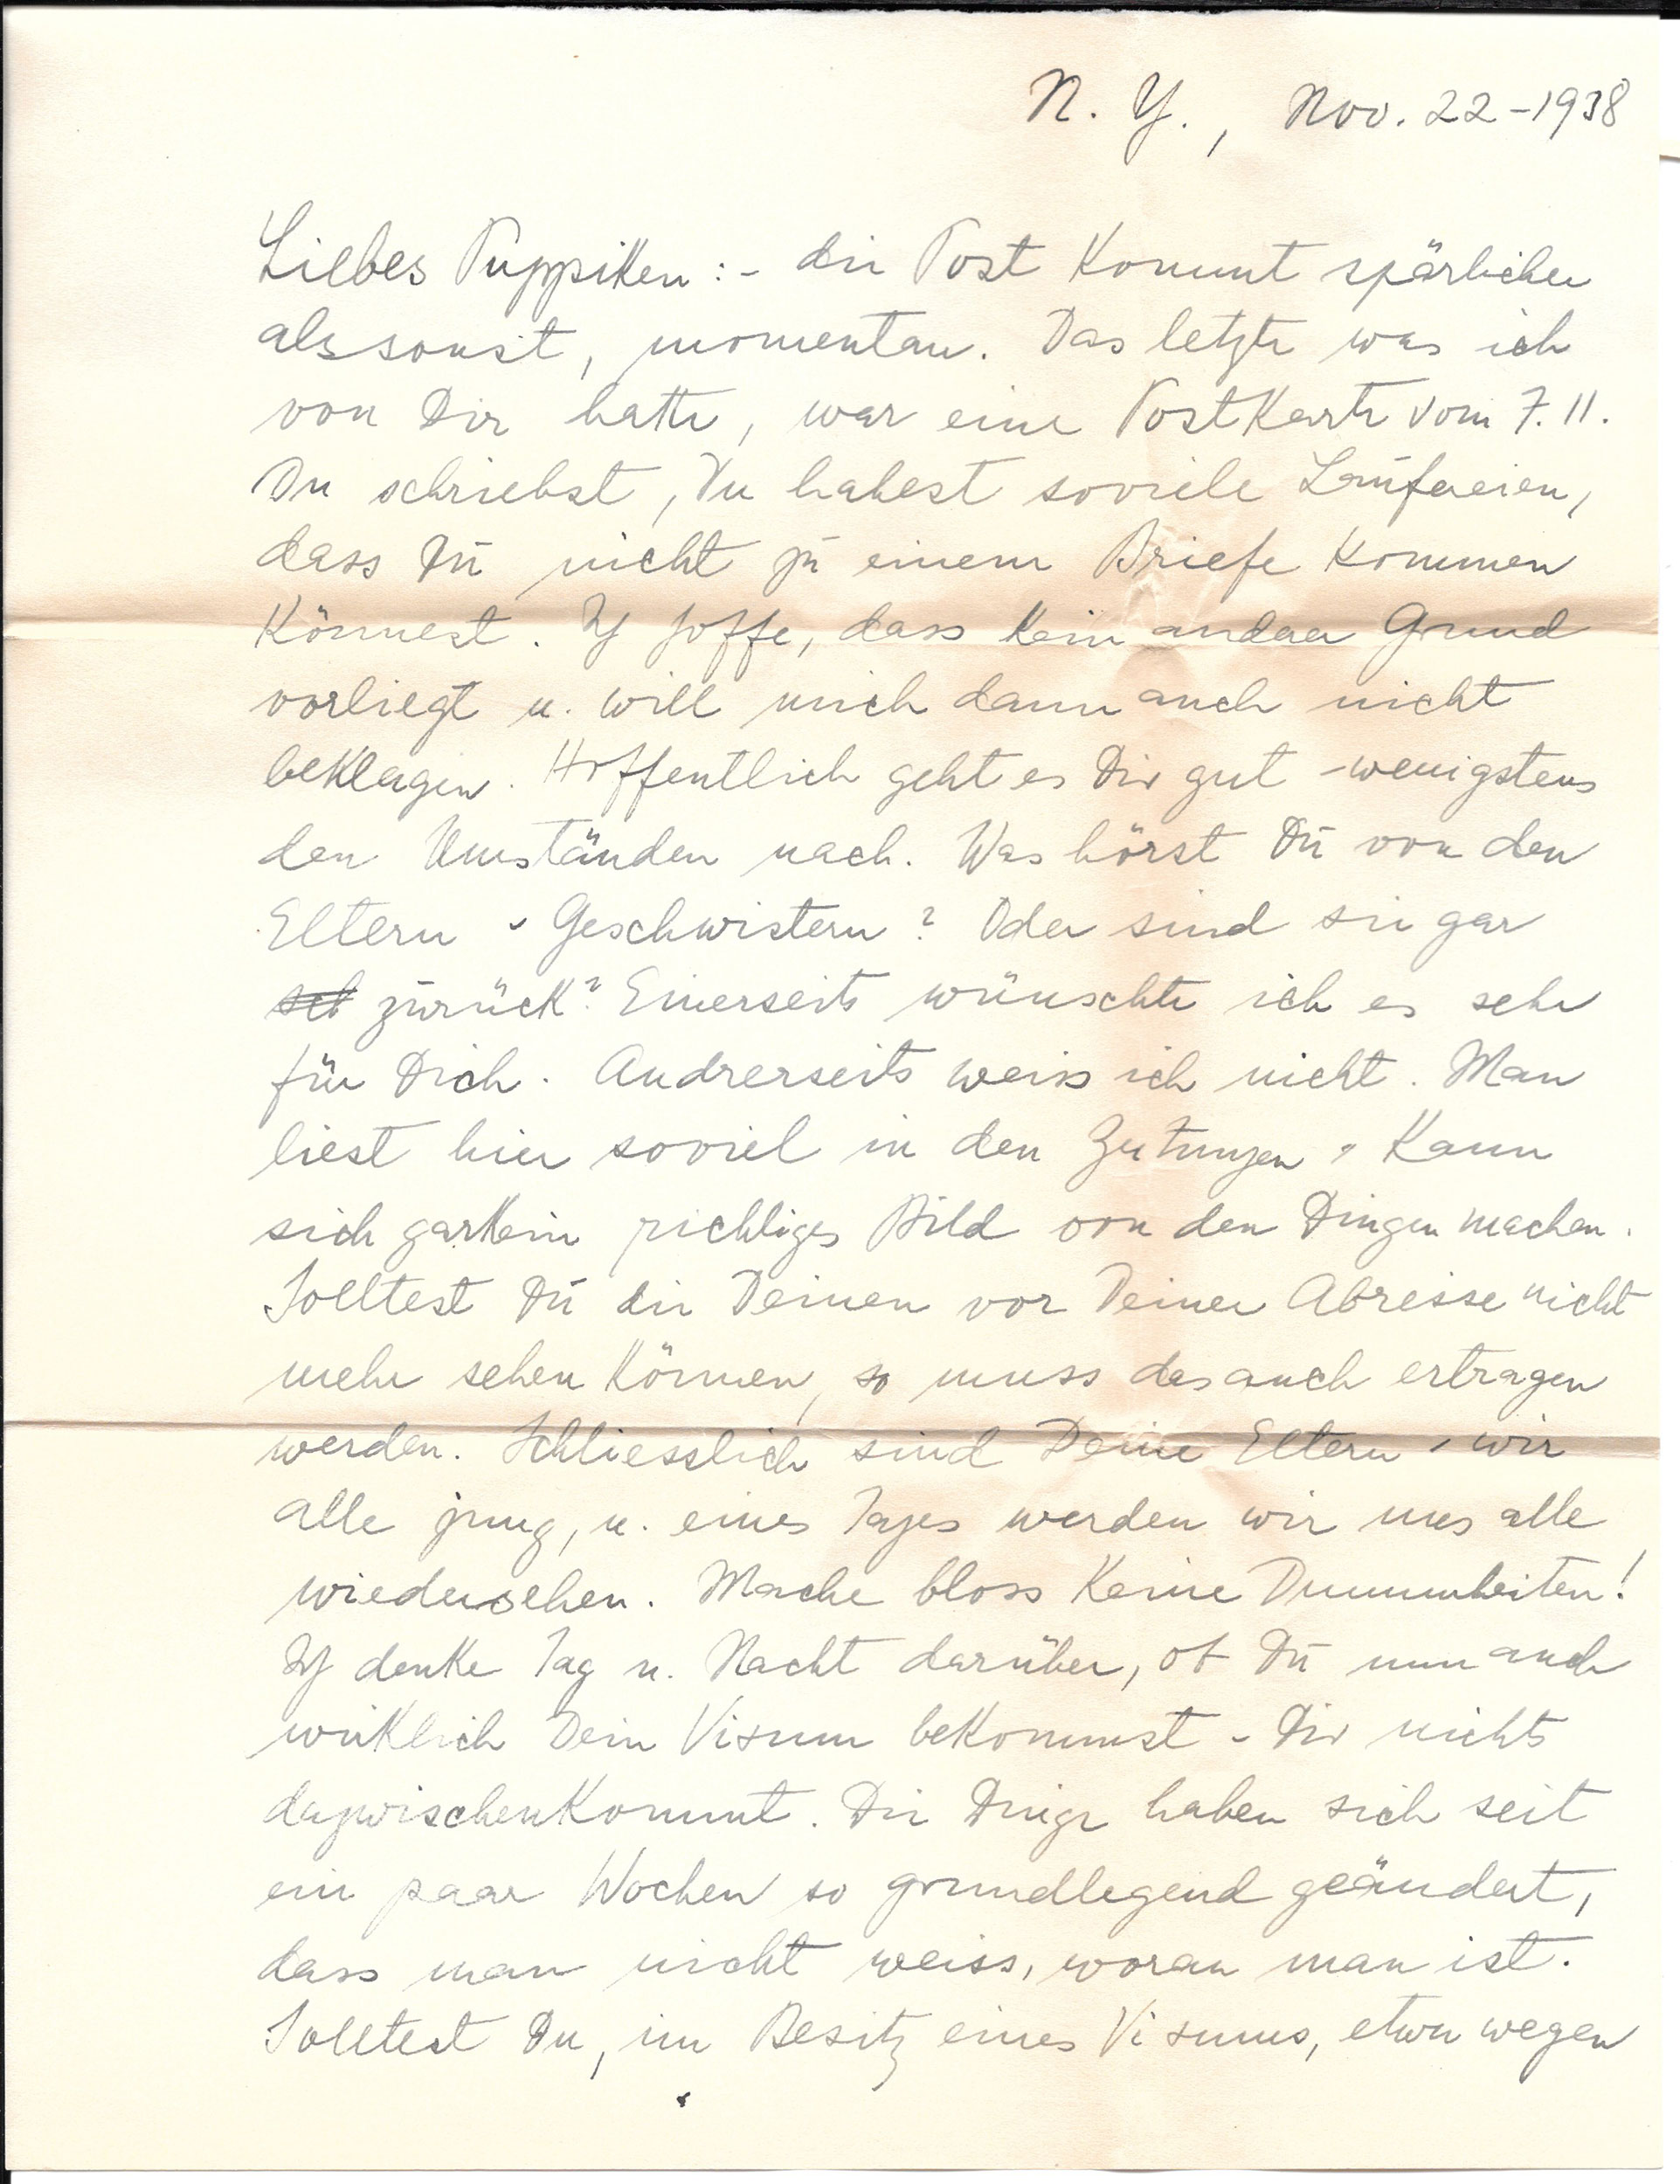 N. Y., Nov. 22-1938
Liebes Puppiken :- die Post kommt spärlicher
als sonst, momentan. Das letzte was ich
von Dir hatte, war eine Postkarte vom 7. 11.
Du schriebst, Du habest soviele Laufereien,
dass Du nicht zu einem Briefe kommen
könnest. Ich hoffe, dass kein andrer Grund
vorliegt u. will mich dann auch nicht
beklagen. Hoffentlich geht es Dir gut - wenigstens
den Umständen nach. Was hörst Du von den
Eltern u Geschwistern? Oder sind sie gar
zurück? Einerseits wünschte ich es sehr
für Dich. Andrerseits weiss ich nicht. Man
liest hier soviel in den Zeitungen u kann
sich garkein richtiges Bild von den Dingen machen.
Solltest Du die Deinen vor Deiner Abreise nicht
mehr sehen können, so muss das auch ertragen
werden. Schliesslich sind Deine Eltern u wir
alle jung, u. eines Tages werden wir uns alle
wiedersehen. Mache bloss keine Dummheiten!
Ich denke Tag u. Nacht darüber, ob Du nun auch
wirklich Dein Visum bekommst - Dir nichts
dazwischenkommt. Die Dinge haben sich seit
ein paar Wochen so grundlegend geändert,
dass man nicht weiss, woran man ist.
Solltest Du, im Besitz eines Visums, etwa wegen